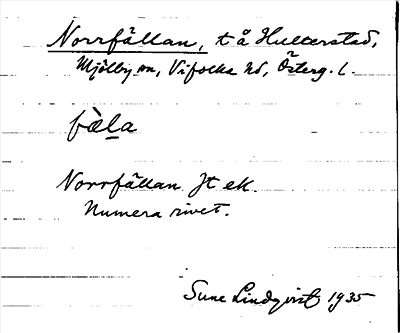 Norrfällan, t å Hulterstad,
Mjölby sn, Vifolka hd, Österg. l.
fæ̀la
Norrfällan Jt ek.
Numera rivet.
Sune Lindqvist 1935